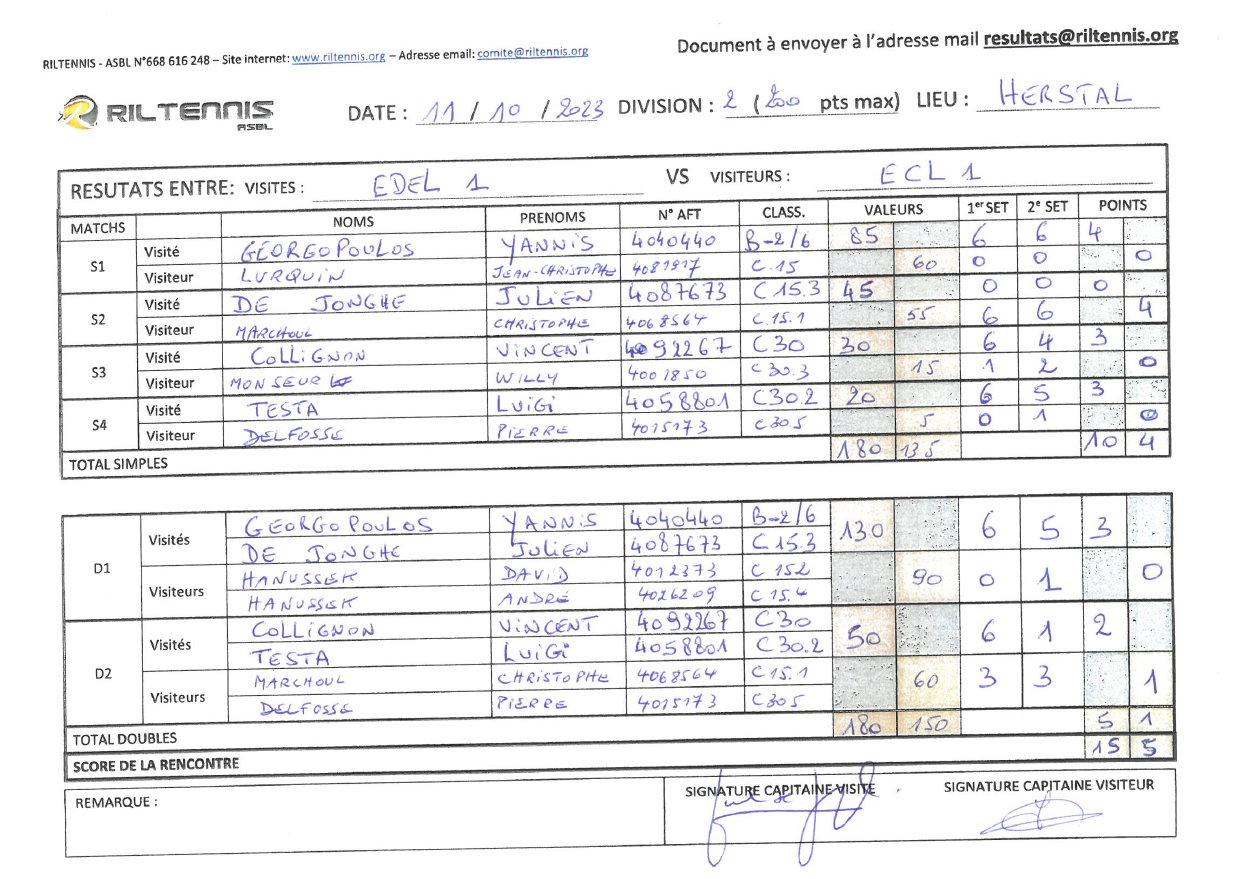 RILTENNIS - ASBL N°668 616 248 – Site internet: www.riltennis.org – Adresse email: comite@riltennis.org
Document à envoyer à l'adresse mail resultats@riltennis.org
RILTENNIS ASBL
DATE : 11 / 10 / 2023 DIVISION : 2 (200 pts max) LIEU : HERSTAL
RESUTATS ENTRE: VISITES : EDEL 1 VS VISITEURS : ECL 1
MATCHS NOMS PRENOMS N° AFT CLASS. VALEURS 1er SET 2e SET POINTS
S1
Visité GEORGOPOULOS YANNIS 4040440 B-2/6 85 6 6 4
Visiteur LURQUIN JEAN-CHRISTOPHE 4081917 C.15 60 0 0 0
S2
Visité DE JONGHE JULIEN 4087673 C15.3 45 0 0 0
Visiteur MARCHOUL CHRISTOPHE 4068564 C.15.1 55 6 6 4
S3
Visité COLLIGNON VINCENT 4092267 C30 30 6 4 3
Visiteur MONSEUR WILLY 4001850 C30.3 15 1 2 0
S4
Visité TESTA LUIGI 4058801 C30.2 20 6 5 3
Visiteur DELFOSSE PIERRE 4015173 C30.5 5 0 1 0
TOTAL SIMPLES 180 135 10 4
D1
Visités GEORGOPOULOS YANNIS 4040440 B-2/6 130 6 5 3
DE JONGHE JULIEN 4087673 C15.3
Visiteurs HANUSSEK DAVID 4012373 C 152 90 0 1 0
HANUSSEK ANDRÉ 4026209 C 15.4
D2
Visités COLLIGNON VINCENT 4092267 C30 50 6 1 2
TESTA LUIGI 4058801 C30.2
Visiteurs MARCHOUL CHRISTOPHE 4068564 C15.1 60 3 3 1
DELFOSSE PIERRE 4015173 C305
TOTAL DOUBLES 180 150 5 1
SCORE DE LA RENCONTRE 15 5
REMARQUE :
SIGNATURE CAPITAINE VISITE
SIGNATURE CAPITAINE VISITEUR